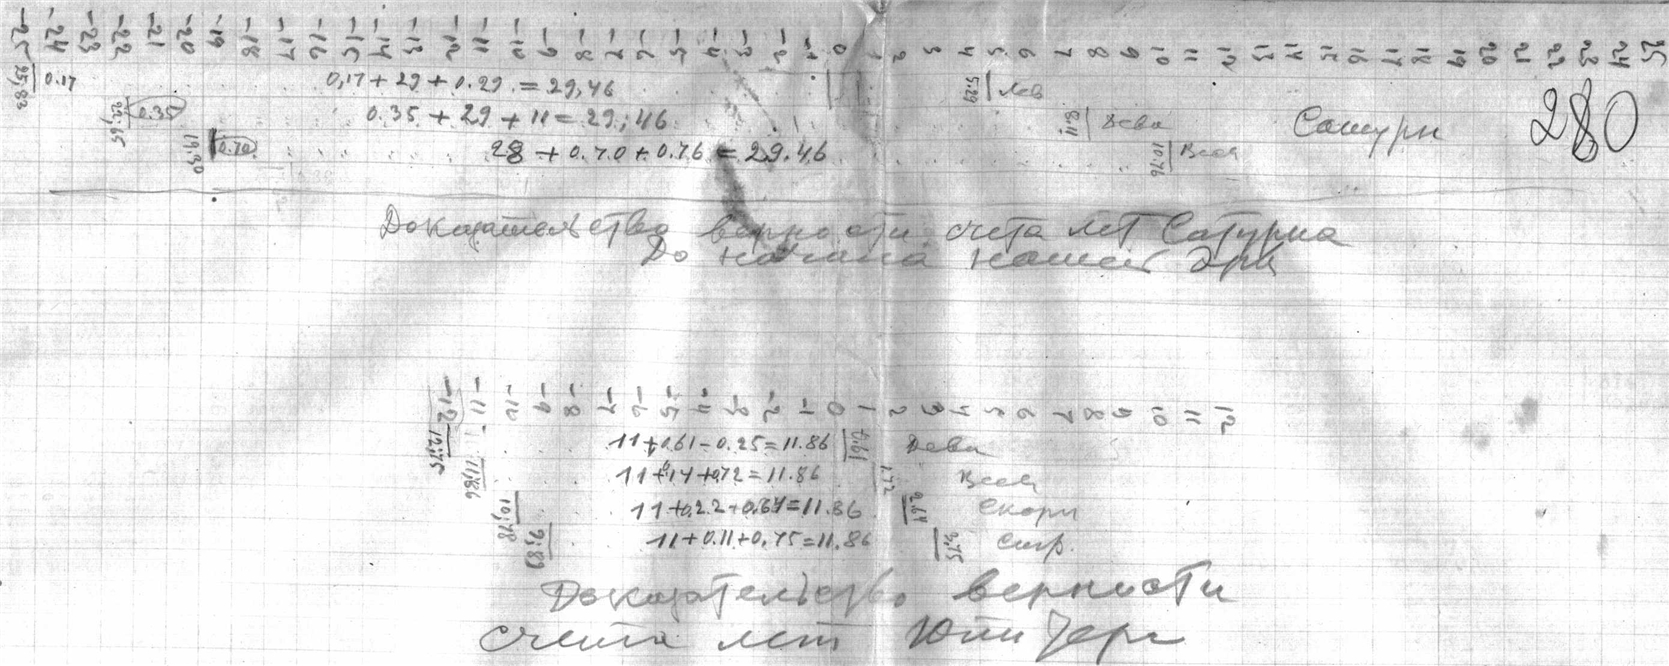 -25 -24 -23 -22 -21 -20 -19 -18 -17 -16 -15 -14 -13 -12 -11 -10 -9 -8 -7 -6 -5 -4 -3 -2 -1 0 1 2 3 4 5 6 7 8 9 10 11 12 13 14 15 16 17 18 19 20 21 22 23 24 25
25,83 0.17 0,17 + 29 + 0.29 = 29,46 5.29 Лев
23,65 0.35 0.35 + 29 + 11 = 29,46 8.11 Дева Сатурн 280
19,30 0.70 28 + 0.70 + 0.76 = 29.46 10.76 Весы
Доказательство верности счета лет Сатурна
До начала нашей Эры
-12 -11 -10 -9 -8 -7 -6 -5 -4 -3 -2 -1 0 1 2 3 4 5 6 7 8 9 10 11 12
12,75 11+0.61-0.25=11.86 0.61 Дева
11,86 11+,14+0,72=11.86 1.72 Весы
10,78 11+0.22+0.64=11.86 2.64 Скорп
9,89 11+0.11+0,75=11.86 3.75 Стр.
Доказательство верности
счета лет Юпитера